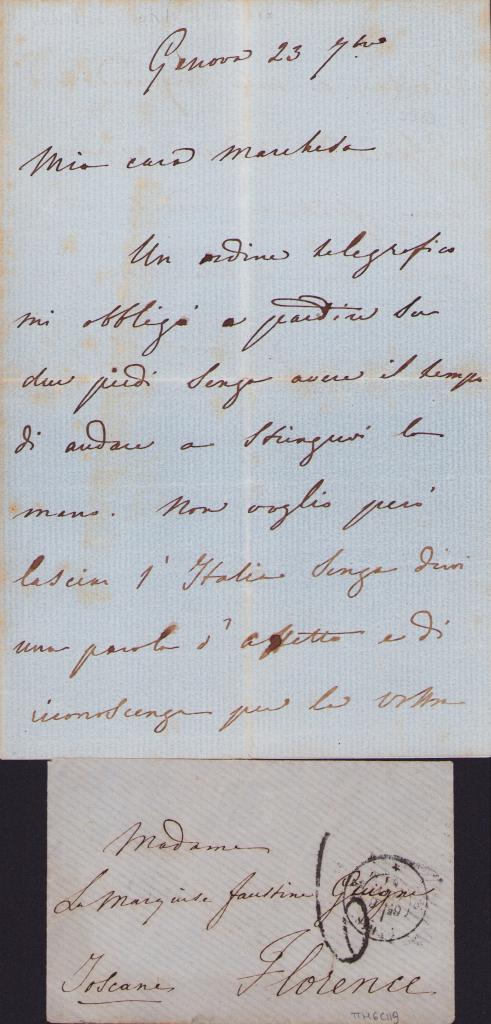 Genova 23 7bre
Mia cara Marchesa
Un ordine telegrafico
mi obbliga a partire su
due piedi senza avere il tempo
di andare a stringervi la
mano. Non voglio però
lasciar l'Italia senza dirvi
una parola d'affetto e di
riconoscenza per la vostra
Madame
La Marquise Faustine
6
Florence
Toscane